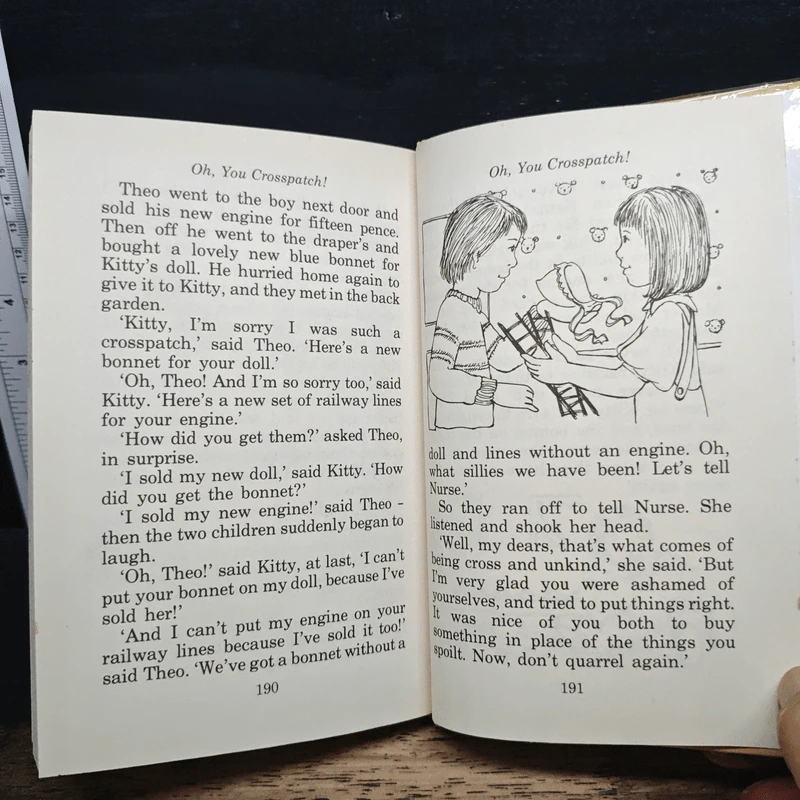 Oh, You Crosspatch!
Theo went to the boy next door and
sold his new engine for fifteen pence.
Then off he went to the draper's and
bought a lovely new blue bonnet for
Kitty's doll. He hurried home again to
give it to Kitty, and they met in the back
garden.
'Kitty, I'm sorry I was such a
crosspatch,' said Theo. 'Here's a new
bonnet for your doll.'
'Oh, Theo! And I'm so sorry too,' said
Kitty. 'Here's a new set of railway lines
for your engine.'
'How did you get them?' asked Theo,
in surprise.
'I sold my new doll,' said Kitty. 'How
did you get the bonnet?'
'I sold my new engine!' said Theo -
then the two children suddenly began to
laugh.
'Oh, Theo!' said Kitty, at last, 'I can't
put your bonnet on my doll, because I've
sold her!'
'And I can't put my engine on your
railway lines because I've sold it too!'
said Theo. 'We've got a bonnet without a
190
Oh, You Crosspatch!
doll and lines without an engine. Oh,
what sillies we have been! Let's tell
Nurse.'
So they ran off to tell Nurse. She
listened and shook her head.
'Well, my dears, that's what comes of
being cross and unkind,' she said. 'But
I'm very glad you were ashamed of
yourselves, and tried to put things right.
It was nice of you both to buy
something in place of the things you
spoilt. Now, don't quarrel again.'
191